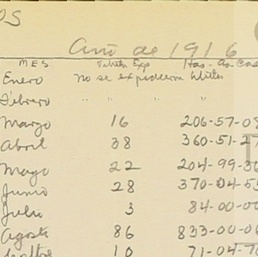 OS
Año de 1916
MES Exp Has. As. Cas
Enero No se expidieron
Febrero " " " "
Marzo 16 206-57-08
Abril 38 360-51-27
Mayo 22 204-99-30
Junio 28 370-04-55
Julio 3 84-00-00
Agosto 86 833-00-00
10 71-04-70